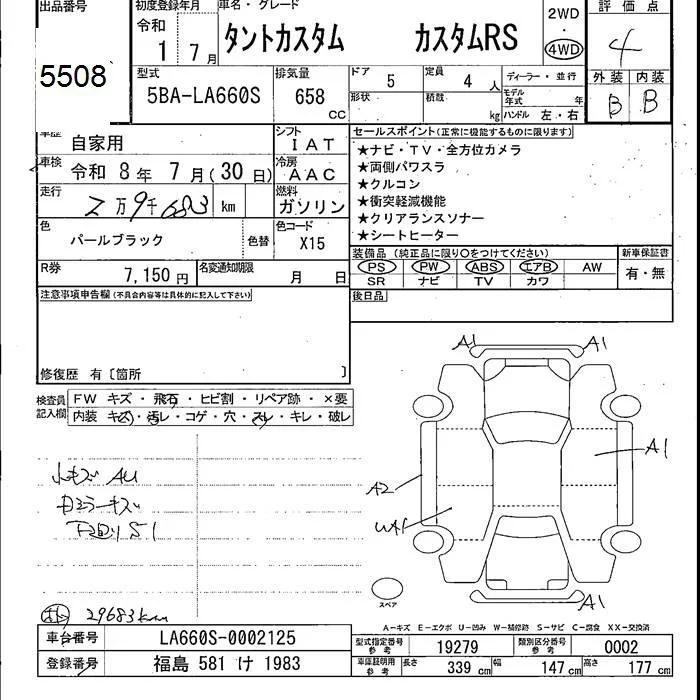 出品番号 初度登録年月 車名・グレード 2WD 評価点
令和 1 7月 タントカスタム カスタムRS 4WD 4
5508 型式 排気量 ドア 5 定員 4人 ディーラー・並行 外装 内装
5BA-LA660S 658 CC 形状 積載 kg モデル年式 年 ハンドル 左・右 B B
車歴 自家用 シフト IAT セールスポイント(正常に機能するものに限ります)
車検 令和 8年 7月(30日) 冷房 AAC ★ナビ・TV・全方位カメラ
★両側パワスラ
走行 2万9千683 km 燃料 ガソリン ★クルコン
★衝突軽減機能
色 パールブラック 色替 色コード X15 ★クリアランスソナー
★シートヒーター
R券 7,150円 名変通知期限 月 日 装備品 (純正品に限り○をつけてください) 新車保証書
PS PW ABS エアB AW 有・無
SR ナビ TV カワ
注意事項申告欄(不具合内容等は具体的に記入して下さい) 後日品
修復歴 有〔箇所 〕
検査員記入欄 FW キズ・飛石・ヒビ割・リペア跡・×要
内装 キズ・汚レ・コゲ・穴・スレ・キレ・破レ
A1 A1
A1
小キズ AU
A2
UA1
下回り S1
スペア
A1
29683km
A-キズ E-エクボ U-凹み W-補修跡 S-サビ C-腐食 XX-交換済
車台番号 LA660S-0002125 型式指定番号 参考 19279 類別区分番号 参考 0002
登録番号 福島 581 け 1983 車庫証明用 参考 長さ 339 cm 幅 147 cm 高さ 177 cm